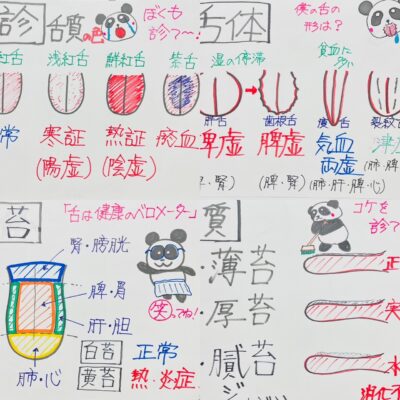 診
舌質の色
ぼくも
診て〜!
紅舌
浅紅舌
鮮紅舌
紫舌
常
寒証
熱証
瘀血
(陽虚)
(陰虚)
舌体
僕の舌の
形は?
湿の停滞
貧血に
多い
歯根舌
瘦舌
裂紋舌
脾虚
気血
両虚
(脾・腎)
(肺・肝・脾・心)
苔
「舌は健康のバロメーター」
腎・膀胱
脾・胃
肝・胆
肺・心
笑ってね!
白苔
正常
黄苔
熱・炎症
質
コケを
診て
薄苔
厚苔
膩苔
正
実
水
消化不